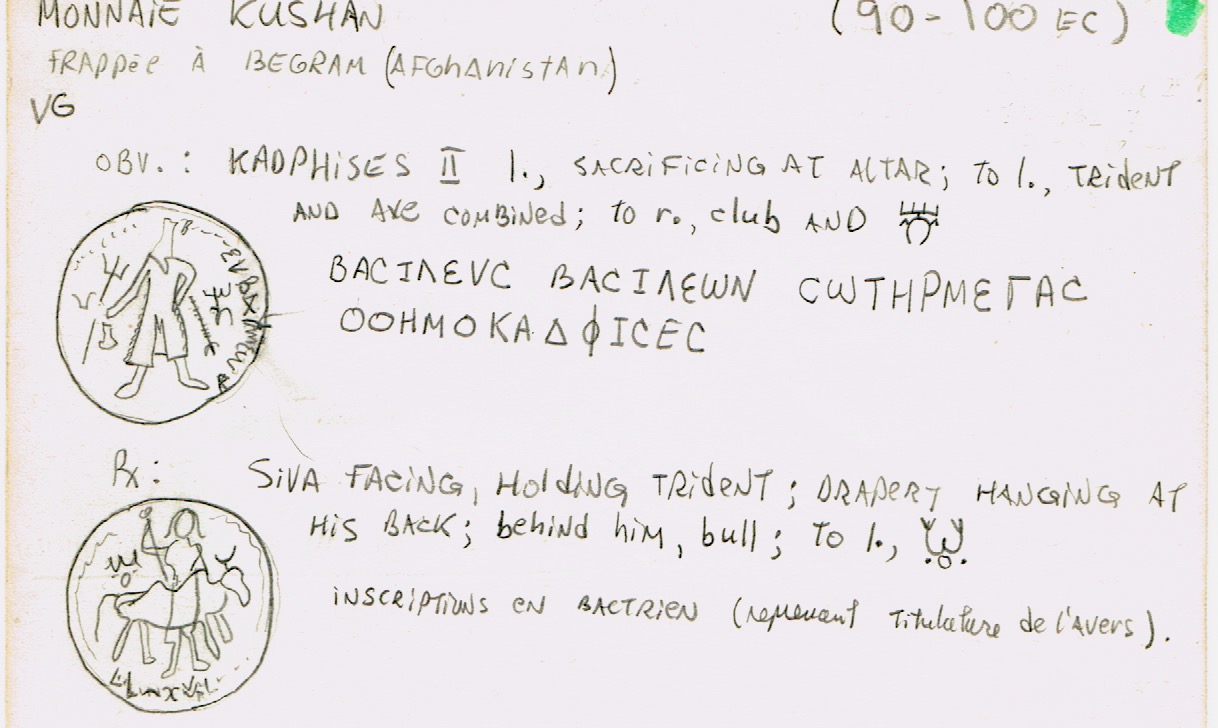 MONNAIE KUSHAN (90-100 EC)
FRAPPÉE À BEGRAM (AFGhANiSTAN)
VG
OBV.: KADPHiSES II l., SACRiFiCiNG AT ALTAR; to l., TRidENT
AND AXE COMBiNED; to r., club AND
ΒΑCΙΛΕVC ΒΑCΙΛΕωΝ CωΤΗΡΜΕΓΑC
ΟΟΗΜΟΚΑΔΦΙCΕC
Rx: SiVA FACiNG, HoldiNG TRidENT; DRAPERY HANGiNG AT
HiS BACK; behind him, bull; to l.,
iNSCRiPTiONS EN BACTRiEN (reprenant titulature de l'AVERS).